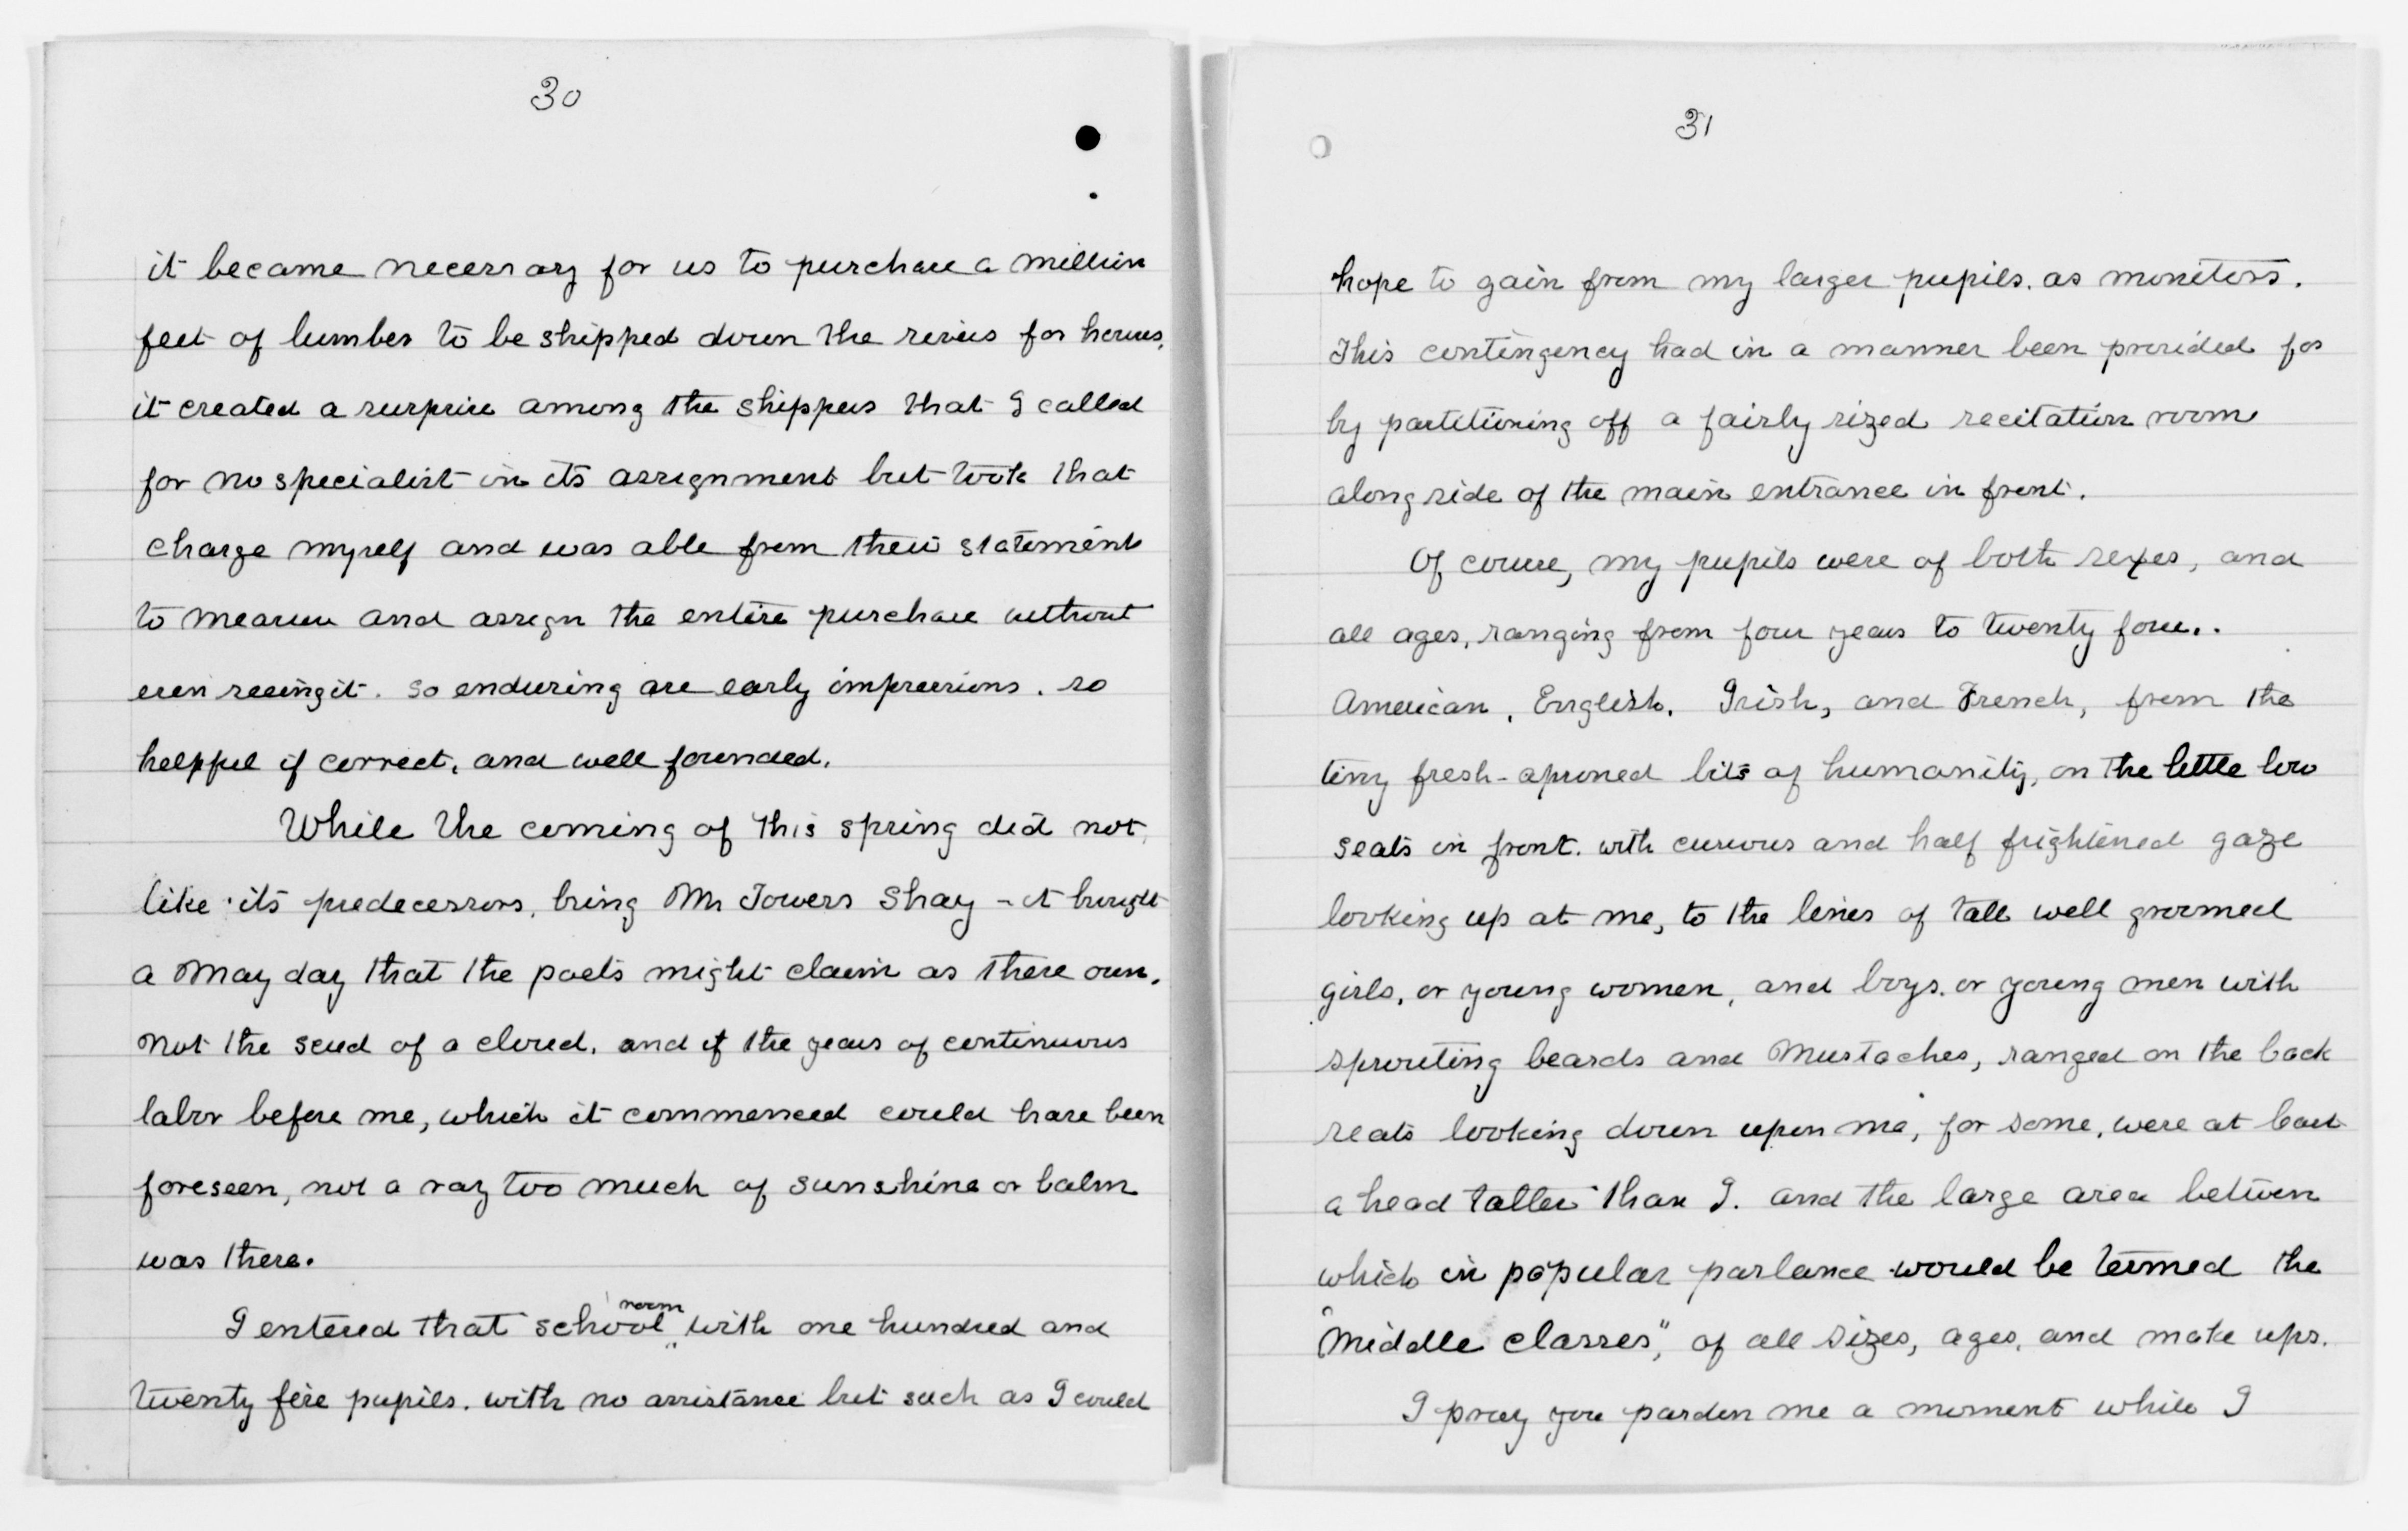 30
it became necessary for us to purchase a million
feet of lumber to be shipped down the rivers for homes,
it created a surprise among the shippers that I called
for no specialist in its assignment but took that
charge myself and was able from their statement
to measure and assign the entire purchase without
even seeing it. So enduring are early impressions. so
helpful if correct, and well founded.
While the coming of this spring did not,
like its predecessors, bring Mr Towers Shay - it brought
a May day that the poets might claim as there own.
Not the scud of a cloud, and if the years of continuous
labor before me, which it commenced could have been
foreseen, not a ray too much of sunshine or balm
was there.
room
I entered that school with one hundred and
twenty five pupils. with no assistance but such as I could
31
hope to gain from my larger pupils. as monitors.
This contingency had in a manner been provided for
by partitioning off a fairly sized recitation room
along side of the main entrance in front.
Of course, my pupils were of both sexes, and
all ages, ranging from four years to twenty four..
American, English. Irish, and French, from the
tiny fresh-aproned bits of humanity, on the little low
seats in front. with curious and half frightened gaze
looking up at me, to the lines of tall well groomed
girls, or young women, and boys. or young men with
sprouting beards and Mustaches, ranged on the back
seats looking down upon me, for some, were at least
a head taller than I. and the large area between
which in popular parlance would be termed the
"Middle classes", of all sizes, ages, and make ups.
I pray you pardon me a moment while I